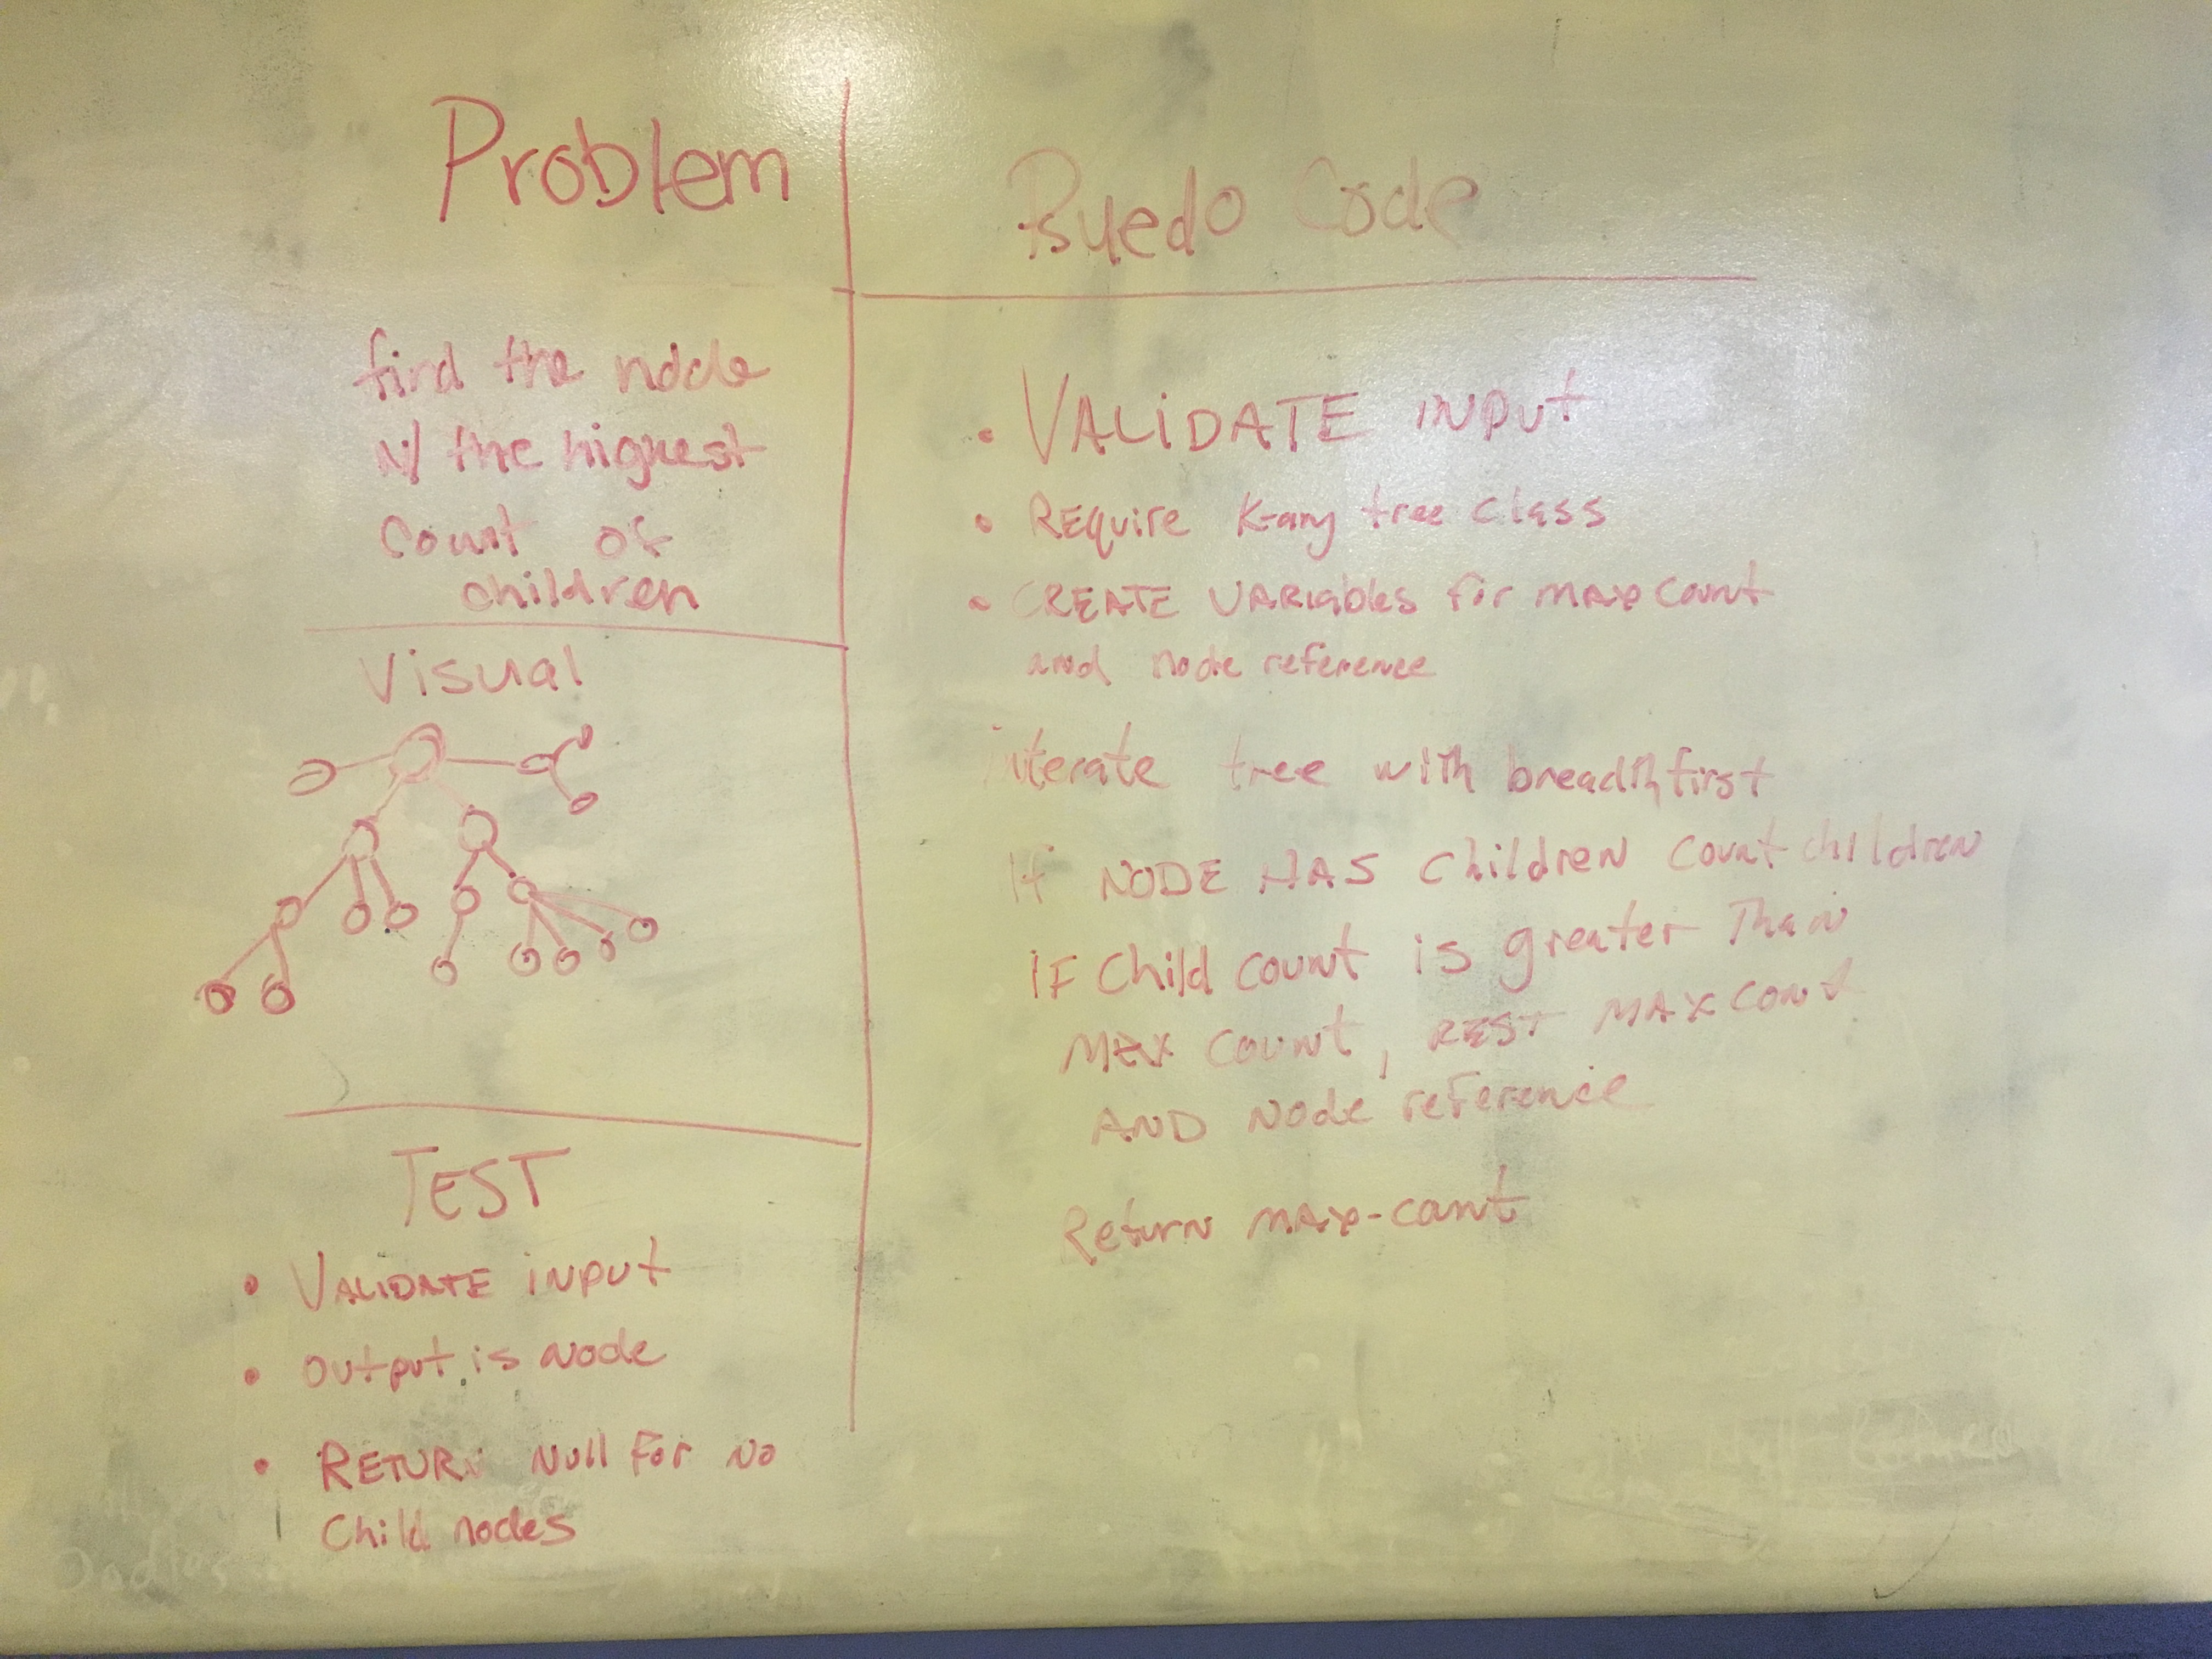 Problem
find the node
w/ the highest
count of
children
Visual
TEST
• VALIDATE INPUT
• Output is Node
• RETURN Null For No
Child nodes
Psuedo Code
• VALiDATE INPUT
• REquire K-ary tree class
• CREATE VARiables for max count
and node reference
iterate tree with breadth first
If NODE HAS Children Count children
IF Child count is greater Than
MAX Count, REST MAX CONT
AND Node reference
Return MAX-count